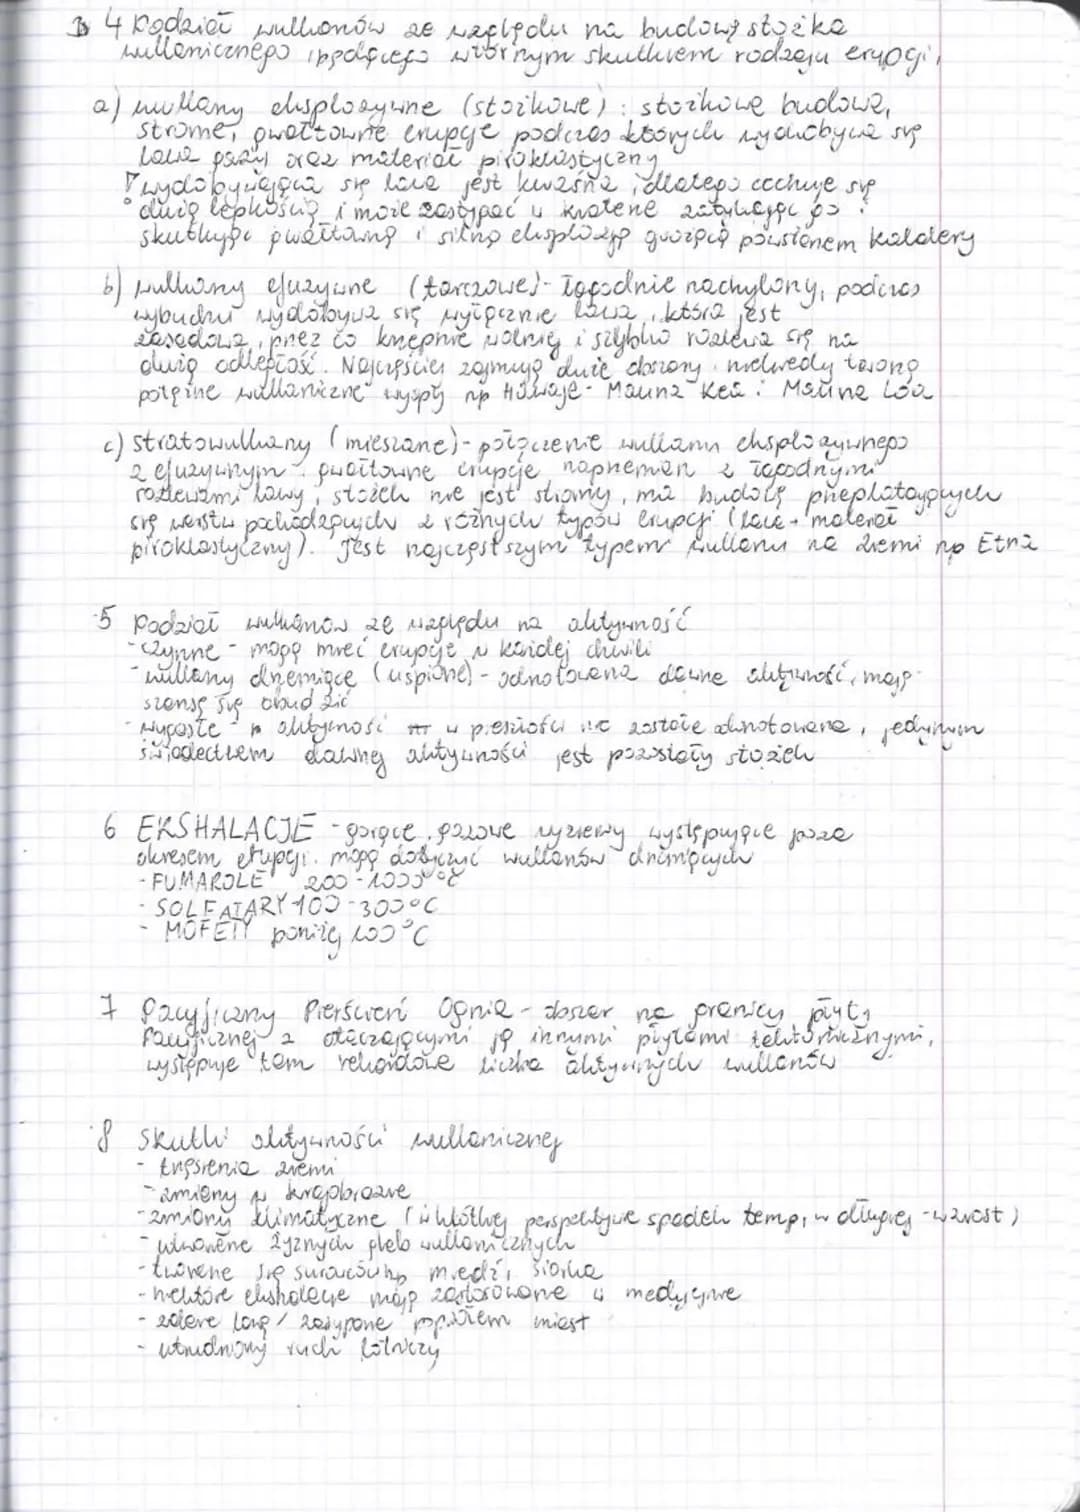 4 Podział wulkanów ze względu na budowę stożka
wulkanicznego będącego wtórnym skutkiem rodzaju erupcji,
a) wulkany eksplozywne (stożkowe) : stożkowa budowa,
strome, gwałtowne erupcje podczas których wydobywa się
lawa gazy oraz materiał piroklastyczny
wydobywająca się lawa jest kwaśna, dlatego cechuje się
dużą lepkością i może zastygać w kraterze zatykając go i
skutkując gwałtowną i silną eksplozją grożącą powstaniem kaldery
b) wulkany efuzywne (tarczowe) - łagodnie nachylony, podczas
wybuchu wydobywa się wyłącznie lawa, która jest
zasadowa, przez co krzepnie wolniej i szybko rozlewa się na
dużą odległość. Najczęściej zajmują duże obszary, niekiedy tworzą
potężne wulkaniczne wyspy np Hawaje - Mauna Kea i Mauna Loa
c) stratowulkany (mieszane) - połączenie wulkanu eksplozywnego
z efuzywnym - gwałtowne erupcje naprzemian z łagodnymi
rozlewami lawy, stożek nie jest stromy, ma budowę przeplatających
się warstw pochodzących z różnych typów erupcji (lawa + materiał
piroklastyczny). Jest najczęstszym typem wulkanu na ziemi np Etna
5 Podział wulkanów ze względu na aktywność
- czynne - mogą mieć erupcje w każdej chwili
- wulkany drzemiące (uśpione) - odnotowana dawna aktywność, mają
szansę się obudzić
- wygasłe - aktywność w przeszłości nie została odnotowana, jedynym
świadectwem dawnej aktywności jest pozostały stożek
6 EKSHALACJE - gorące gazowe wyziewy występujące poza
okresem erupcji. mogą dotyczyć wulkanów drzemiących
- FUMAROLE 200 - 1000 °C
- SOLFATARY 100 - 300 °C
- MOFETY poniżej 100 °C
7 Pacyficzny Pierścień Ognia - obszar na granicy płyty
Pacyficznej z otaczającymi ją innymi płytami tektonicznymi,
występuje tam rekordowa liczba aktywnych wulkanów
8 Skutki aktywności wulkanicznej
- trzęsienia ziemi
- zmiany w krajobrazie
- zmiany klimatyczne (w krótkiej perspektywie spadek temp, w długiej - wzrost)
- utworzenie żyznych gleb wulkanicznych
- tworzenie się surowców np miedź, siarka
- niektóre ekshalacje mają zastosowanie w medycynie
- zalanie lawą / zasypane popiołem miast
- utrudniony ruch lotniczy